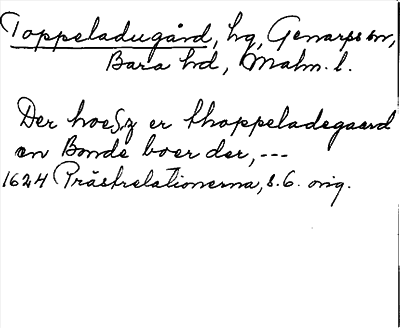 Toppeladugård, hg, Genarps sn,
Bara hd, Malm. l.
Der hoesz er thoppeladegaard
en Bonde boer der, ---
1624 Prästrelationerna, s. 6. orig.